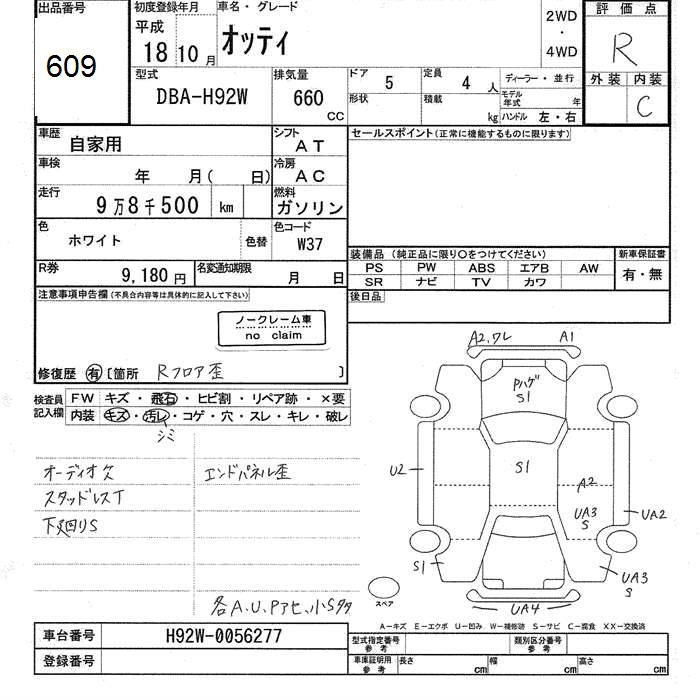 出品番号 初度登録年月 車名・グレード 2WD ・ 4WD 評価点
609 平成 18 10月 オッティ R
外装 内装
C
型式 排気量 ドア 5 定員 4人 ディーラー・並行
DBA-H92W 660 CC 形状 積載 kg モデル年式 年
ハンドル 左・右
車歴 自家用 シフト AT セールスポイント(正常に機能するものに限ります)
車検 年 月( 日) 冷房 AC
走行 9万8千500 km 燃料 ガソリン
色 ホワイト 色替 色コード W37
装備品 (純正品に限り○をつけてください) 新車保証書
PS PW ABS エアB AW 有・無
SR ナビ TV カワ
R券 9,180円 名変通知期限 月 日
後日品
注意事項申告欄(不具合内容等は具体的に記入して下さい)
ノークレーム車
no claim
修復歴 有 〔箇所 Rフロア歪 〕
検査員記入欄 FW キズ・飛石・ヒビ割・リペア跡・×要
内装 キズ・汚レ・コゲ・穴・スレ・キレ・破レ
シミ
オーディオ欠 エンドパネル歪
スタッドレスT
下廻りS
各A.U.Pアセ、小S多々
A2,ワレ A1
Pハゲ
S1
U2 S1 A2
UA3
S
UA2
S1 UA3
S
UA4
スペア
A-キズ E-エクボ U-凹み W-補修跡 S-サビ C-腐食 XX-交換済
車台番号 H92W-0056277 型式指定番号 参考 類別区分番号 参考
登録番号 車庫証明用 参考 長さ cm 幅 cm 高さ cm